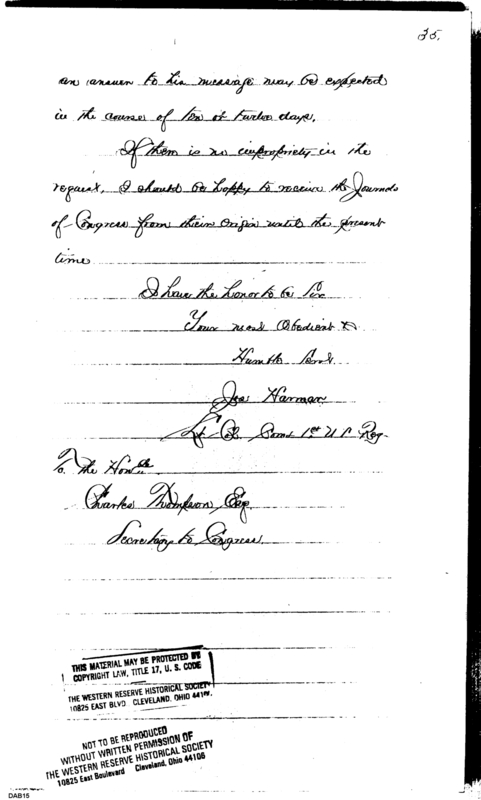 35.
an answer to his message may be expected
in the course of ten or twelve days.
If there is no impropriety in the
request, I should be happy to receive the Journals
of Congress from their Origin until the present
time
I have the honor to be Sir
Your most Obedient &
Humble Servt
Jos Harmar
Lt Col Com 1st U S Reg.
To The Honble
Charles Thompson, Esq
Secretary to Congress.
THIS MATERIAL MAY BE PROTECTED BY
COPYRIGHT LAW, TITLE 17, U. S. CODE
THE WESTERN RESERVE HISTORICAL SOCIETY
10825 EAST BLVD CLEVELAND, OHIO 44106
NOT TO BE REPRODUCED
WITHOUT WRITTEN PERMISSION OF
THE WESTERN RESERVE HISTORICAL SOCIETY
10825 East Boulevard Cleveland, Ohio 44106
DAB15